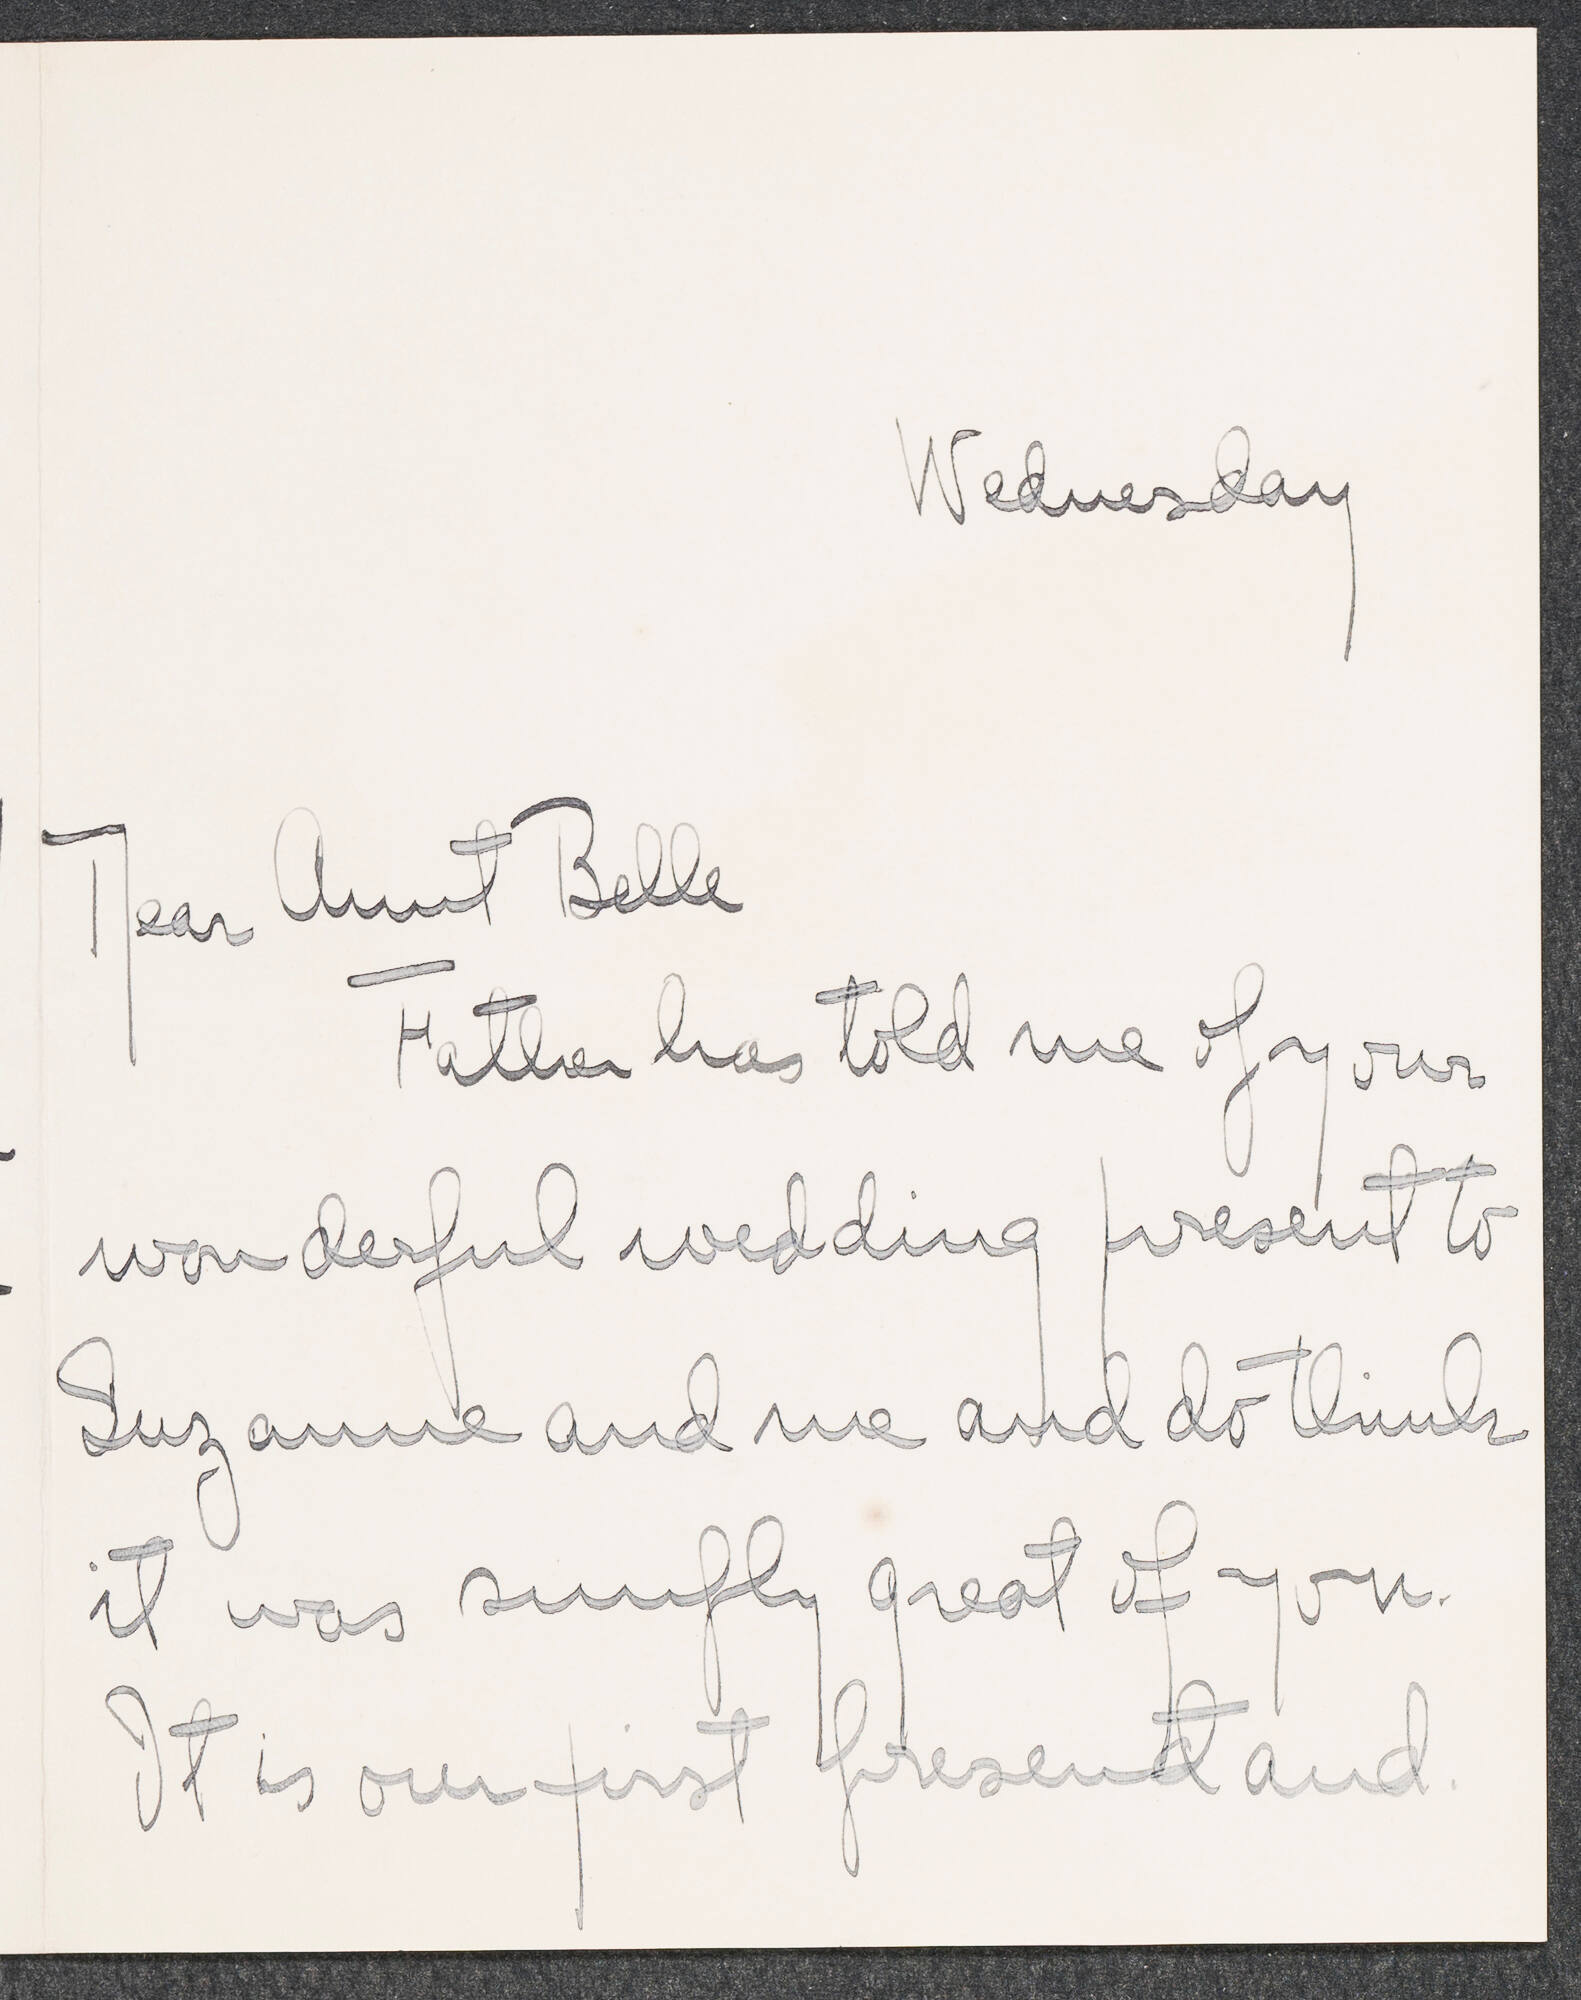 Wednesday
Dear Aunt Belle
Father has told me of your
wonderful wedding present to
Suzanne and me and do think
it was simply great of you.
It is our first present and